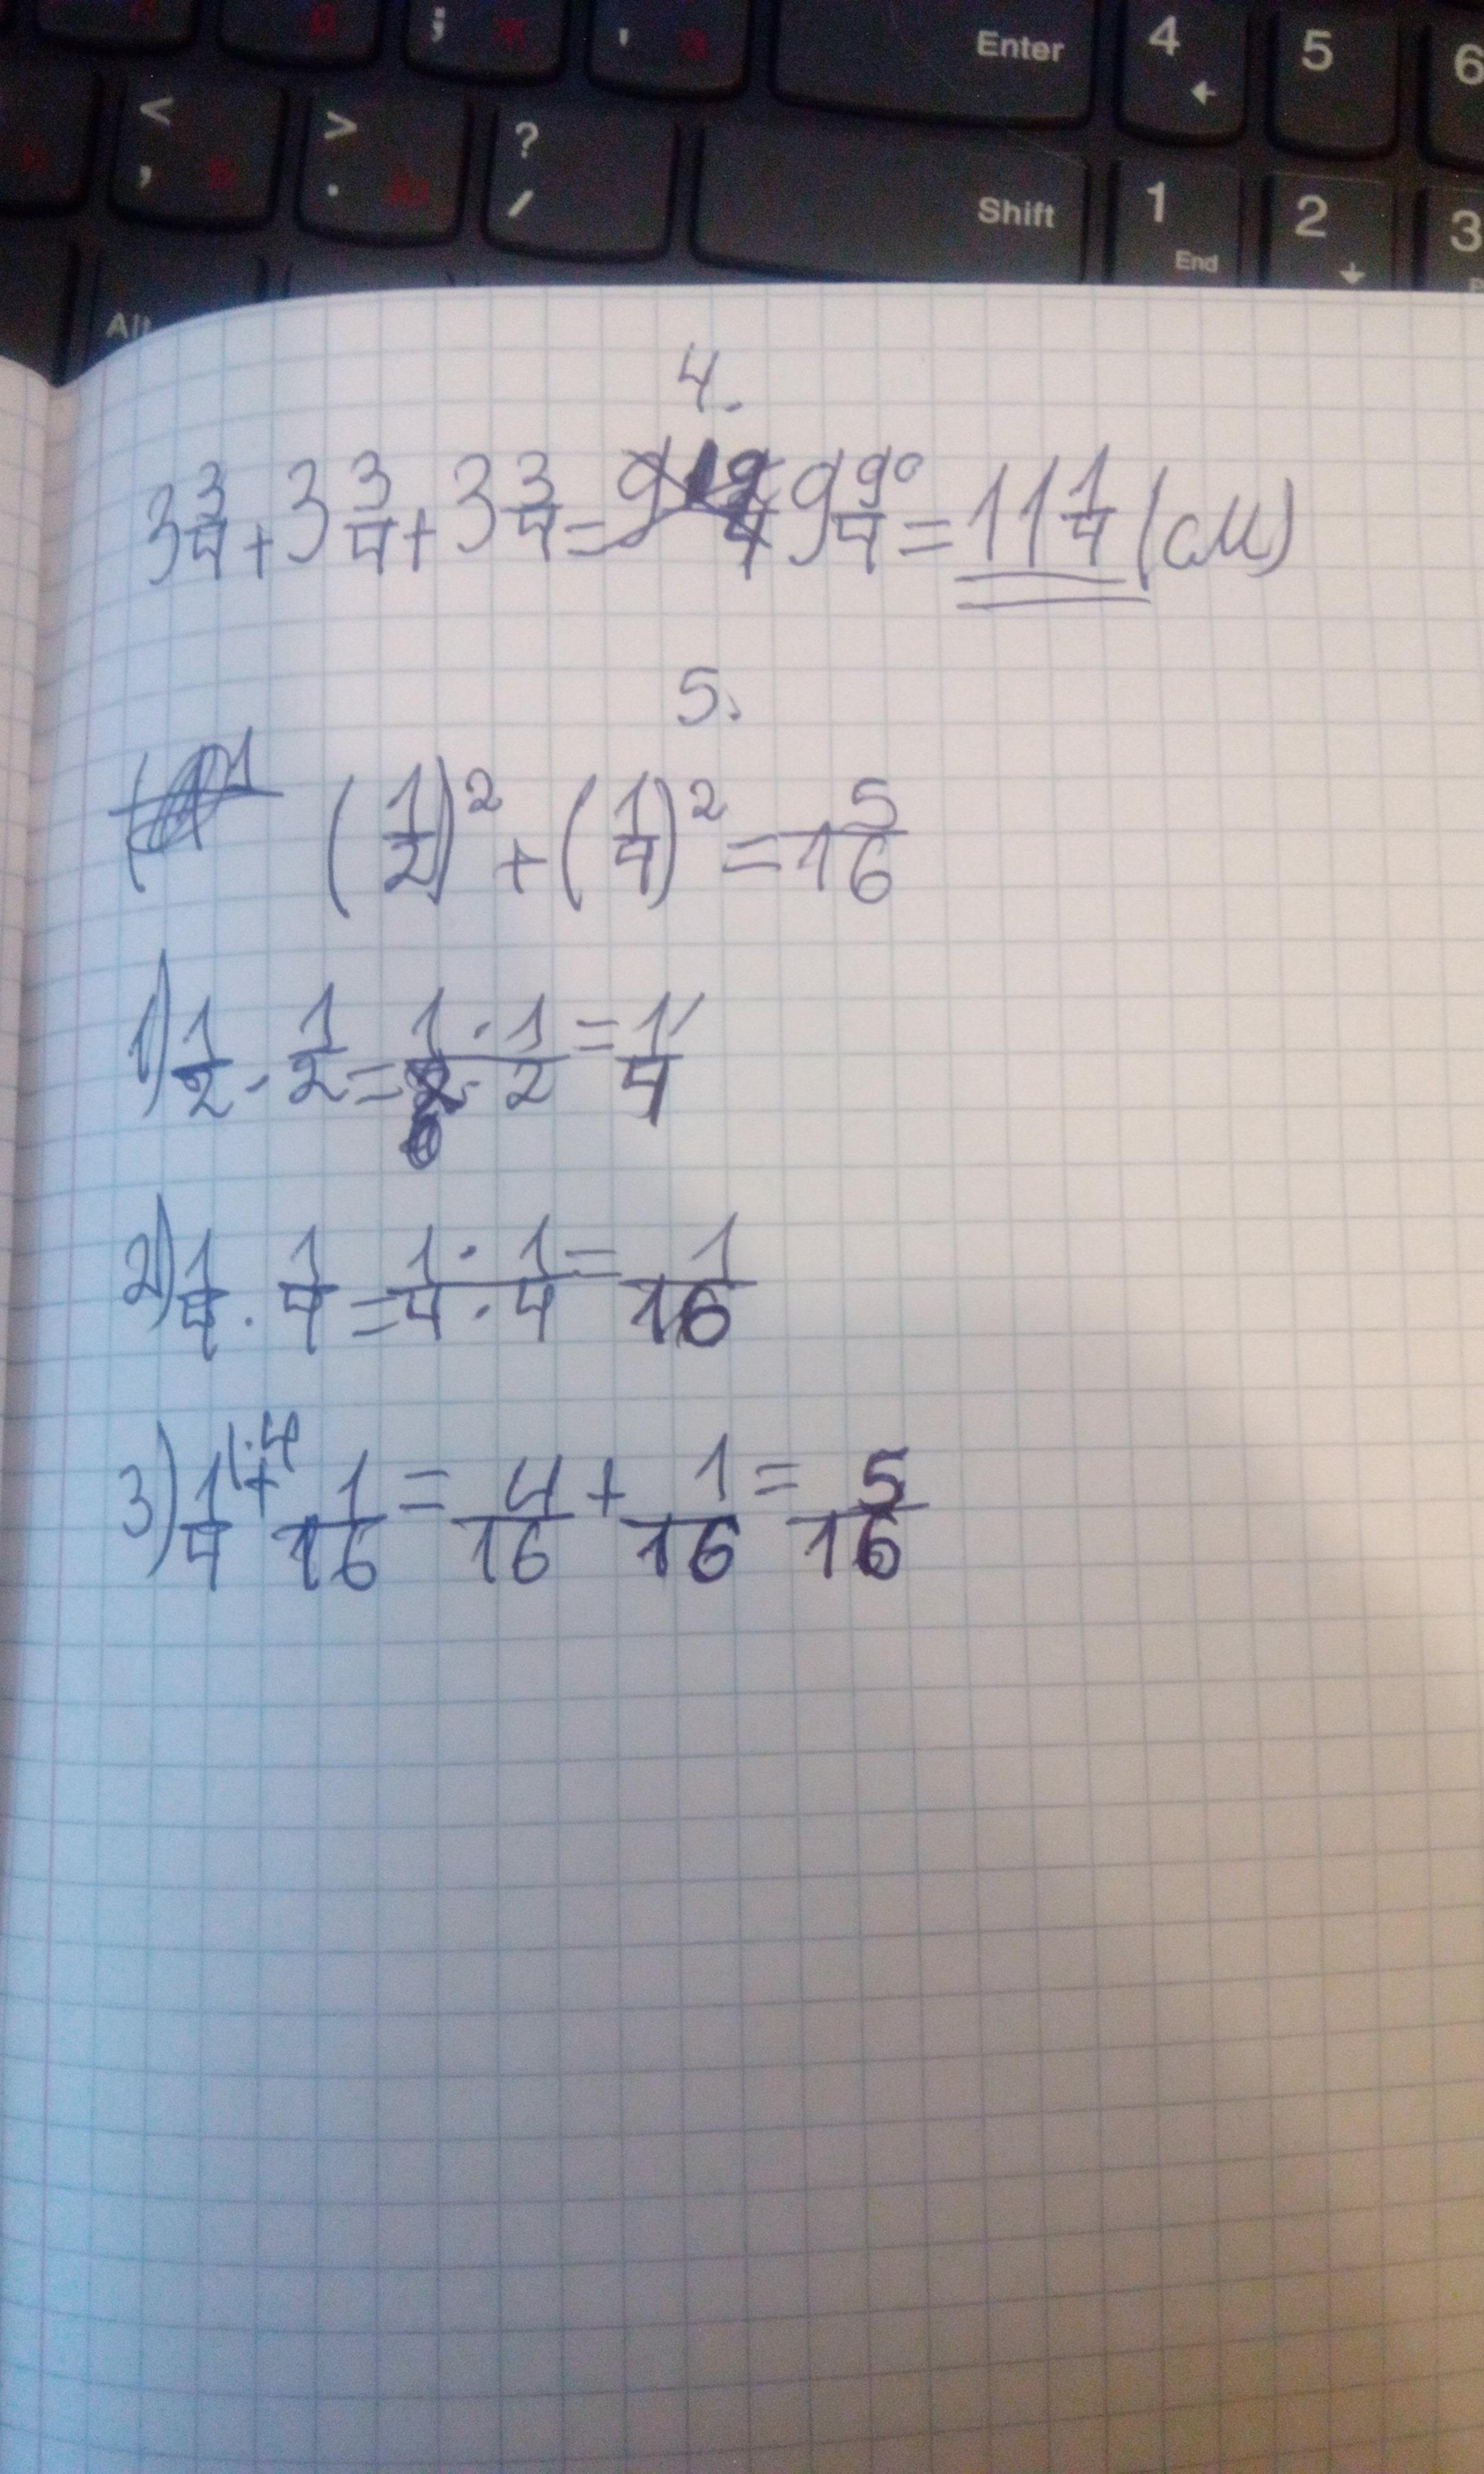 ; ' Enter 4 5 6
< , > . ? / Shift 1 End 2 3
Alt
4.
3 3/4 + 3 3/4 + 3 3/4 = 9 9/4 = 11 1/4 (см)
5.
(1/2)² + (1/4)² = 5/16
1) 1/2 · 1/2 = 1·1/2·2 = 1/4
2) 1/4 · 1/4 = 1·1/4·4 = 1/16
3) 1/4 + 1/16 = 4/16 + 1/16 = 5/16